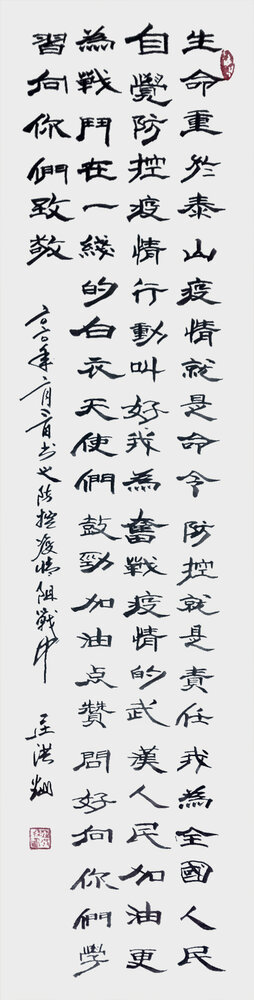 生命重於泰山疫情就是命令防控就是責任我為全國人民
自覺防控疫情行動叫好我為奮戰疫情的武漢人民加油更
為戰鬥在一綫的白衣天使們鼓勁加油点贊問好向你們學
習向你們致敬
二〇二〇年二月二日书之防控疫情阻戰中
洪